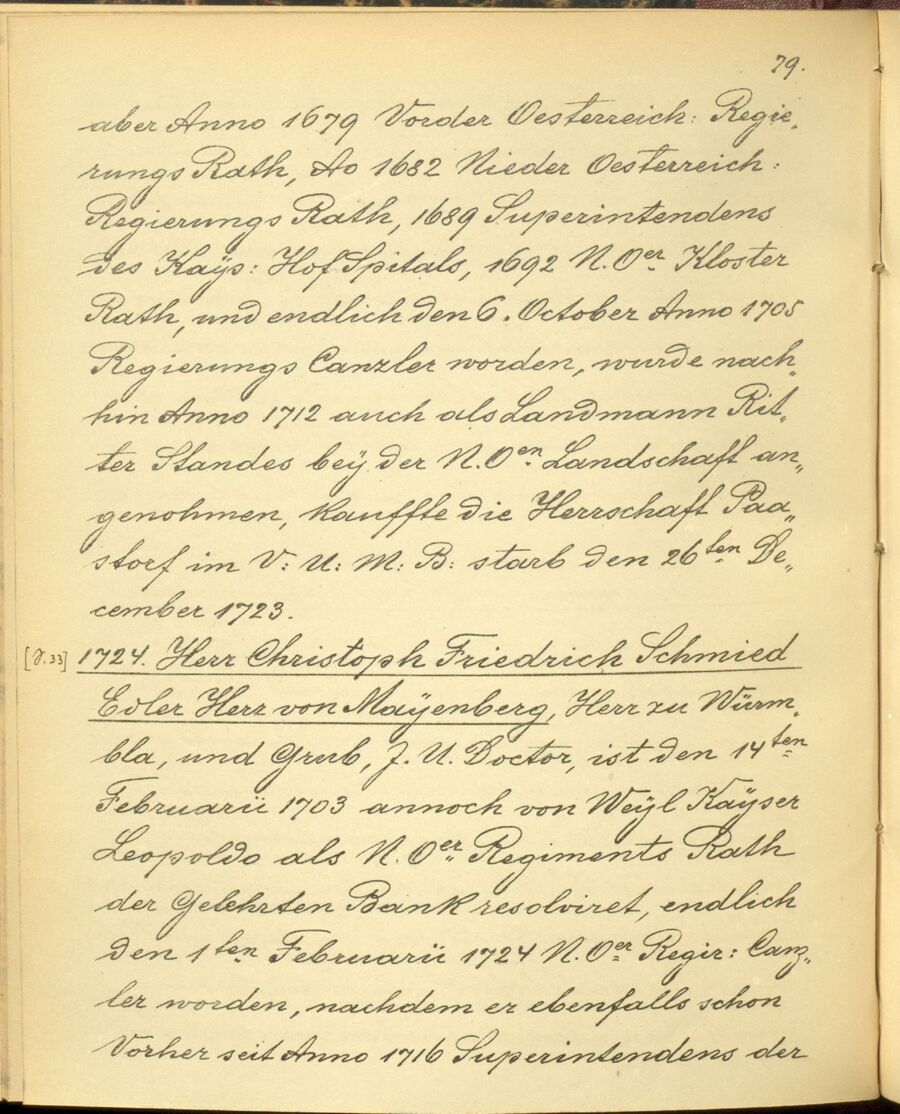 79.
aber Anno 1679 Vorder Oesterreich: Regie„
rungs Rath, Ao 1682 Nieder Oesterreich:
Regierungs Rath, 1689 Superintendens
des Kaÿs: Hof Spitals, 1692 N. Oer Kloster
Rath, und endlich den 6. October Anno 1705
Regierungs Canzler worden, wurde nach„
hin Anno 1712 auch als Landmann Rit„
ter Standes beÿ der N. Oen Landschaft an„
genohmen, kauffte die Herrschaft Paa„
storf im V: U: M: B: starb den 26ten De„
cember 1723.
[J. 33] 1724. Herr Christoph Friedrich Schmied
Edler Herr von Maÿenberg, Herr zu Würm„
bla, und Grub, J. U. Doctor, ist den 14ten
Februarii 1703 annoch von Weÿl Kaÿser
Leopoldo als N. Oer Regiments Rath
der Gelehrten Bank resolviret, endlich
den 1ten Februarii 1724 N. Oer Regir: Canz„
ler worden, nachdem er ebenfalls schon
Vorher seit Anno 1716 Superintendens der